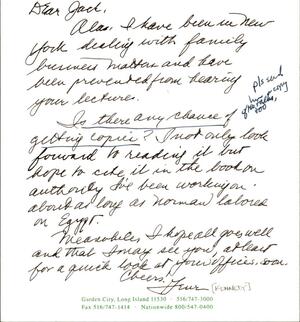 Dear Jack,
Alas. I have been in new
york dealing with family
business matters and have
been prevented from hearing
your lectures.
pls send
copy
too
Is there any chance of
getting copies? I not only look
forward to reading it but
hope to cite it in the book on
authority I've been working
about as long as Norman labored
on Egypt.
Meanwhile, I hope all goes well
and that I may see you, at least
for a quick look at your office, soon.
Cheers,
[KENNEDY]
Garden City, Long Island 11530 · 516/747-3000
Fax 516/747-1414 · Nationwide 800/547-0440